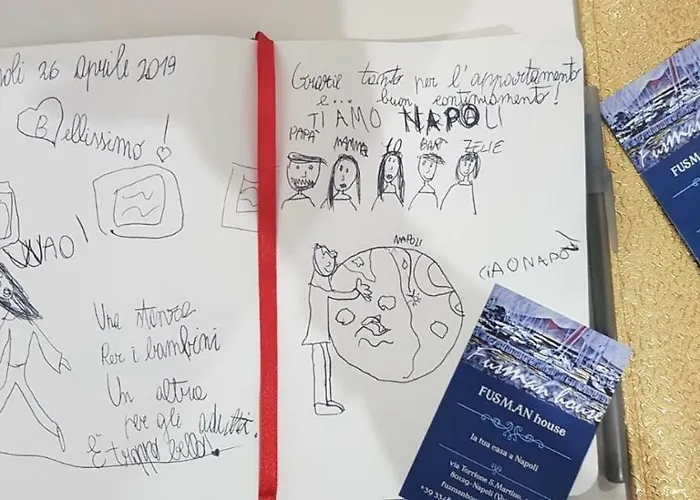 oli 26 aprile 2019
Bellissimo!
WAO!
Una stanza
Per i bambini
Un altra
per gli adulti.
È troppo bello!
Grazie tanto per l'appartamento
e... buon continuamento!
TI AMO NAPOLI
PAPÀ MAMMA IO BART ZELIE
NAPOLI
CIAO NAPOLI
Fusman house
FUSM.AN house
la tua casa a Napoli
via Torrione S.Martino,
80129-Napoli
+39 334
Fusman
FUSM